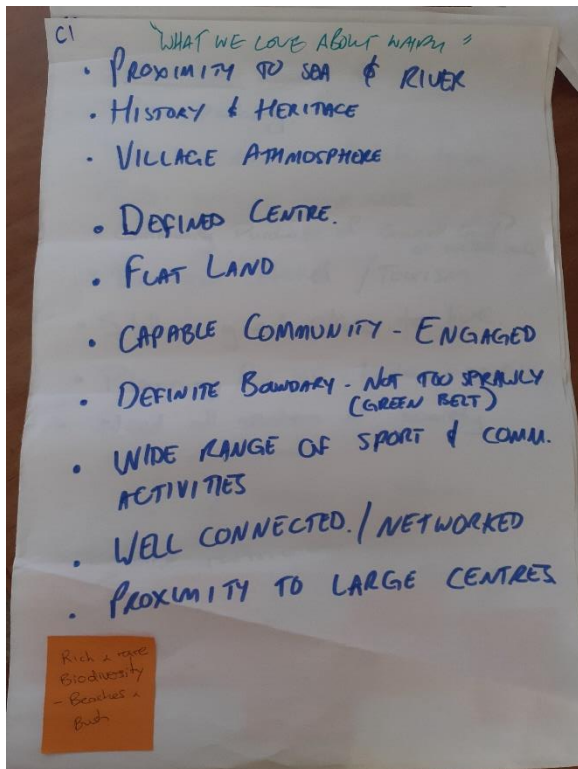 C1
"WHAT WE LOVE ABOUT
• PROXIMITY TO SEA & RIVER
• HISTORY & HERITAGE
• VILLAGE ATHMOSPHERE
• DEFINED CENTRE.
• FLAT LAND
• CAPABLE COMMUNITY - ENGAGED
• DEFINITE BOUNDARY - NOT TOO SPRAWLY
(GREEN BELT)
• WIDE RANGE OF SPORT & COMM.
ACTIVITIES
• WELL CONNECTED./NETWORKED
• PROXIMITY TO LARGE CENTRES
Rich & rare
Biodiversity
- Beaches &
Bush